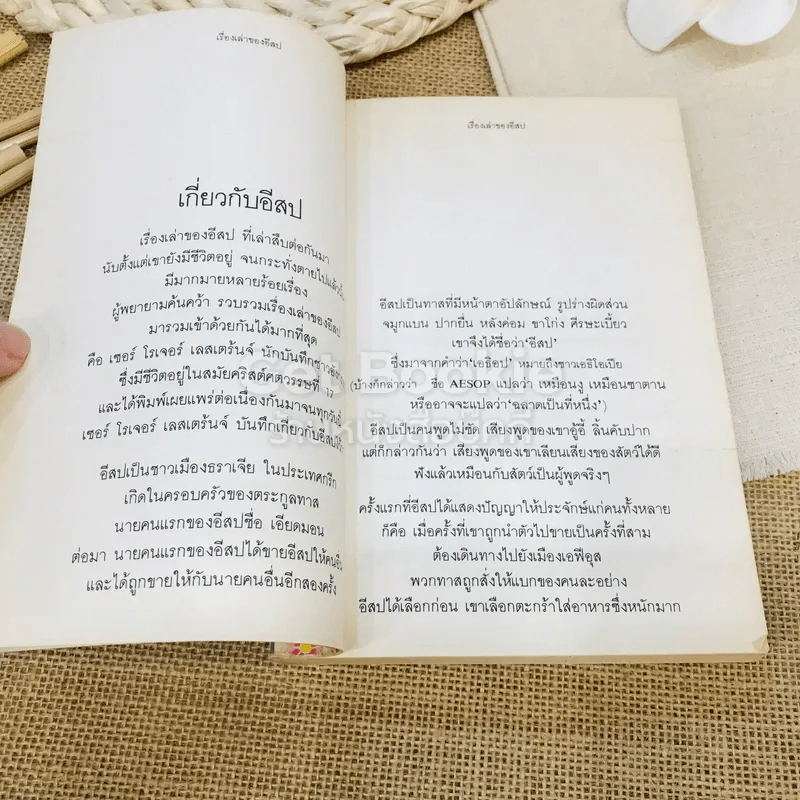 เรื่องเล่าของอีสป
เกี่ยวกับอีสป
เรื่องเล่าของอีสป ที่เล่าสืบต่อกันมา
นับตั้งแต่เขายังมีชีวิตอยู่ จนกระทั่งตายไปแล้วนั้น
มีมากมายหลายร้อยเรื่อง
ผู้พยายามค้นคว้า รวบรวมเรื่องเล่าของอีสป
มารวมเข้าด้วยกันได้มากที่สุด
คือ เซอร์ โรเจอร์ เลสเตร้นจ์ นักบันทึกชาวอังกฤษ
ซึ่งมีชีวิตอยู่ในสมัยคริสต์ศตวรรษที่ 17
และได้พิมพ์เผยแพร่ต่อเนื่องกันมาจนทุกวันนี้
เซอร์ โรเจอร์ เลสเตร้นจ์ บันทึกเกี่ยวกับอีสปไว้ว่า
อีสปเป็นชาวเมืองธราเจีย ในประเทศกรีก
เกิดในครอบครัวของตระกูลทาส
นายคนแรกของอีสปชื่อ เอียดมอน
ต่อมา นายคนแรกของอีสปได้ขายอีสปให้คนอื่น
และได้ถูกขายให้กับนายคนอื่นอีกสองครั้ง
เรื่องเล่าของอีสป
อีสปเป็นทาสที่มีหน้าตาอัปลักษณ์ รูปร่างผิดส่วน
จมูกแบน ปากยื่น หลังค่อม ขาโก่ง ศีรษะเบี้ยว
เขาจึงได้ชื่อว่า'อีสป'
ซึ่งมาจากคำว่า'เอธิอป' หมายถึงชาวเอธิโอเปีย
(บ้างก็กล่าวว่า ชื่อ AESOP แปลว่า เหมือนงู เหมือนซาตาน
หรืออาจจะแปลว่า'ฉลาดเป็นที่หนึ่ง')
อีสปเป็นคนพูดไม่ชัด เสียงพูดของเขาอู้อี้ ลิ้นคับปาก
แต่ก็กล่าวกันว่า เสียงพูดของเขาเลียนเสียงของสัตว์ได้ดี
ฟังแล้วเหมือนกับสัตว์เป็นผู้พูดจริงๆ
ครั้งแรกที่อีสปได้แสดงปัญญาให้ประจักษ์แก่คนทั้งหลาย
ก็คือ เมื่อครั้งที่เขาถูกนำตัวไปขายเป็นครั้งที่สาม
ต้องเดินทางไปยังเมืองเอฟิอุส
พวกทาสถูกสั่งให้แบกของคนละอย่าง
อีสปได้เลือกก่อน เขาเลือกตะกร้าใส่อาหารซึ่งหนักมาก
Get Bookie
ร้านหนังสือเก็ทบุ๊คกี้